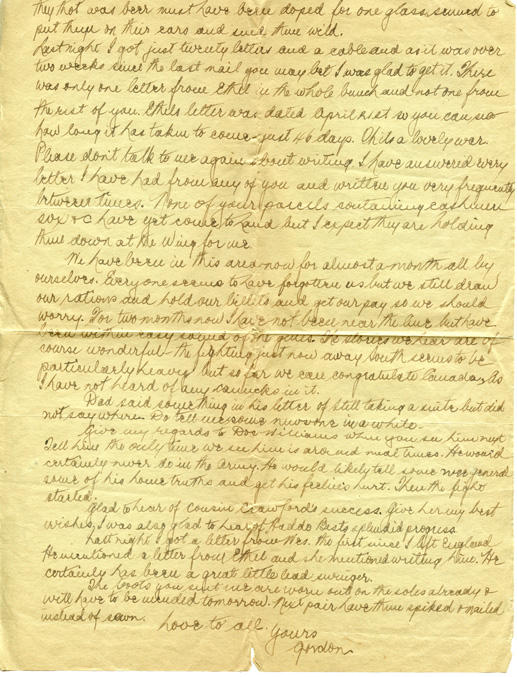 they hot was beer must have been doped for one glass seemed to
put them on their ears and send them wild.
Last night I got just twenty letters and a cable and as it was over
two weeks since the last mail you may bet I was glad to get it. There
was only one letter from Ethel in the whole bunch and not one from
the rest of you. Ethels letter was dated April 21st so you can see
how long it has taken to come - just 46 days. Oh its a lovely war.
Please don't talk to me again about writing. I have answered every
letter I have had from any of you and written you very frequently
between times. None of your parcels containing cashmere
sox &c have yet come to hand but I expect they are holding
them down at the Wing for me
We have been in this area now for almost a month all by
ourselves. Everyone seems to have forgotten us but we still draw
our rations and hold our billets and get our pay so we should
worry. For two months now I have not been near the line but have
been within easy sound of the guns. The stories we hear are of
course wonderful - the fighting just now away South seems to be
particularly heavy but so far we can congratulate Canada, as
I have not heard of any Canucks in it.
Dad said something in his letter of still taking a suite but did
not say where. Do tell me some news once in a while.
Give my regards to Doc Williams when you see him next
Tell him the only time we see him is around meal times. He would
certainly never do in the Army. He would likely tell some general
some of his home truths and get his feelin's hurt. Then the fight
started.
Glad to hear of cousin Crawford's success. Give her my best
wishes. I was also glad to hear of splendid progress
Last night I got a letter from Wes. the first since I left England
He mentioned a letter from Ethel and she mentioned writing him. He
certainly has been a great little lead swinger.
The boots you sent me are worn out on the soles already &
will have to be mended tomorrow. Next pair have them spiked & nailed
instead of sewn.
Love to all. Yours
Gordon